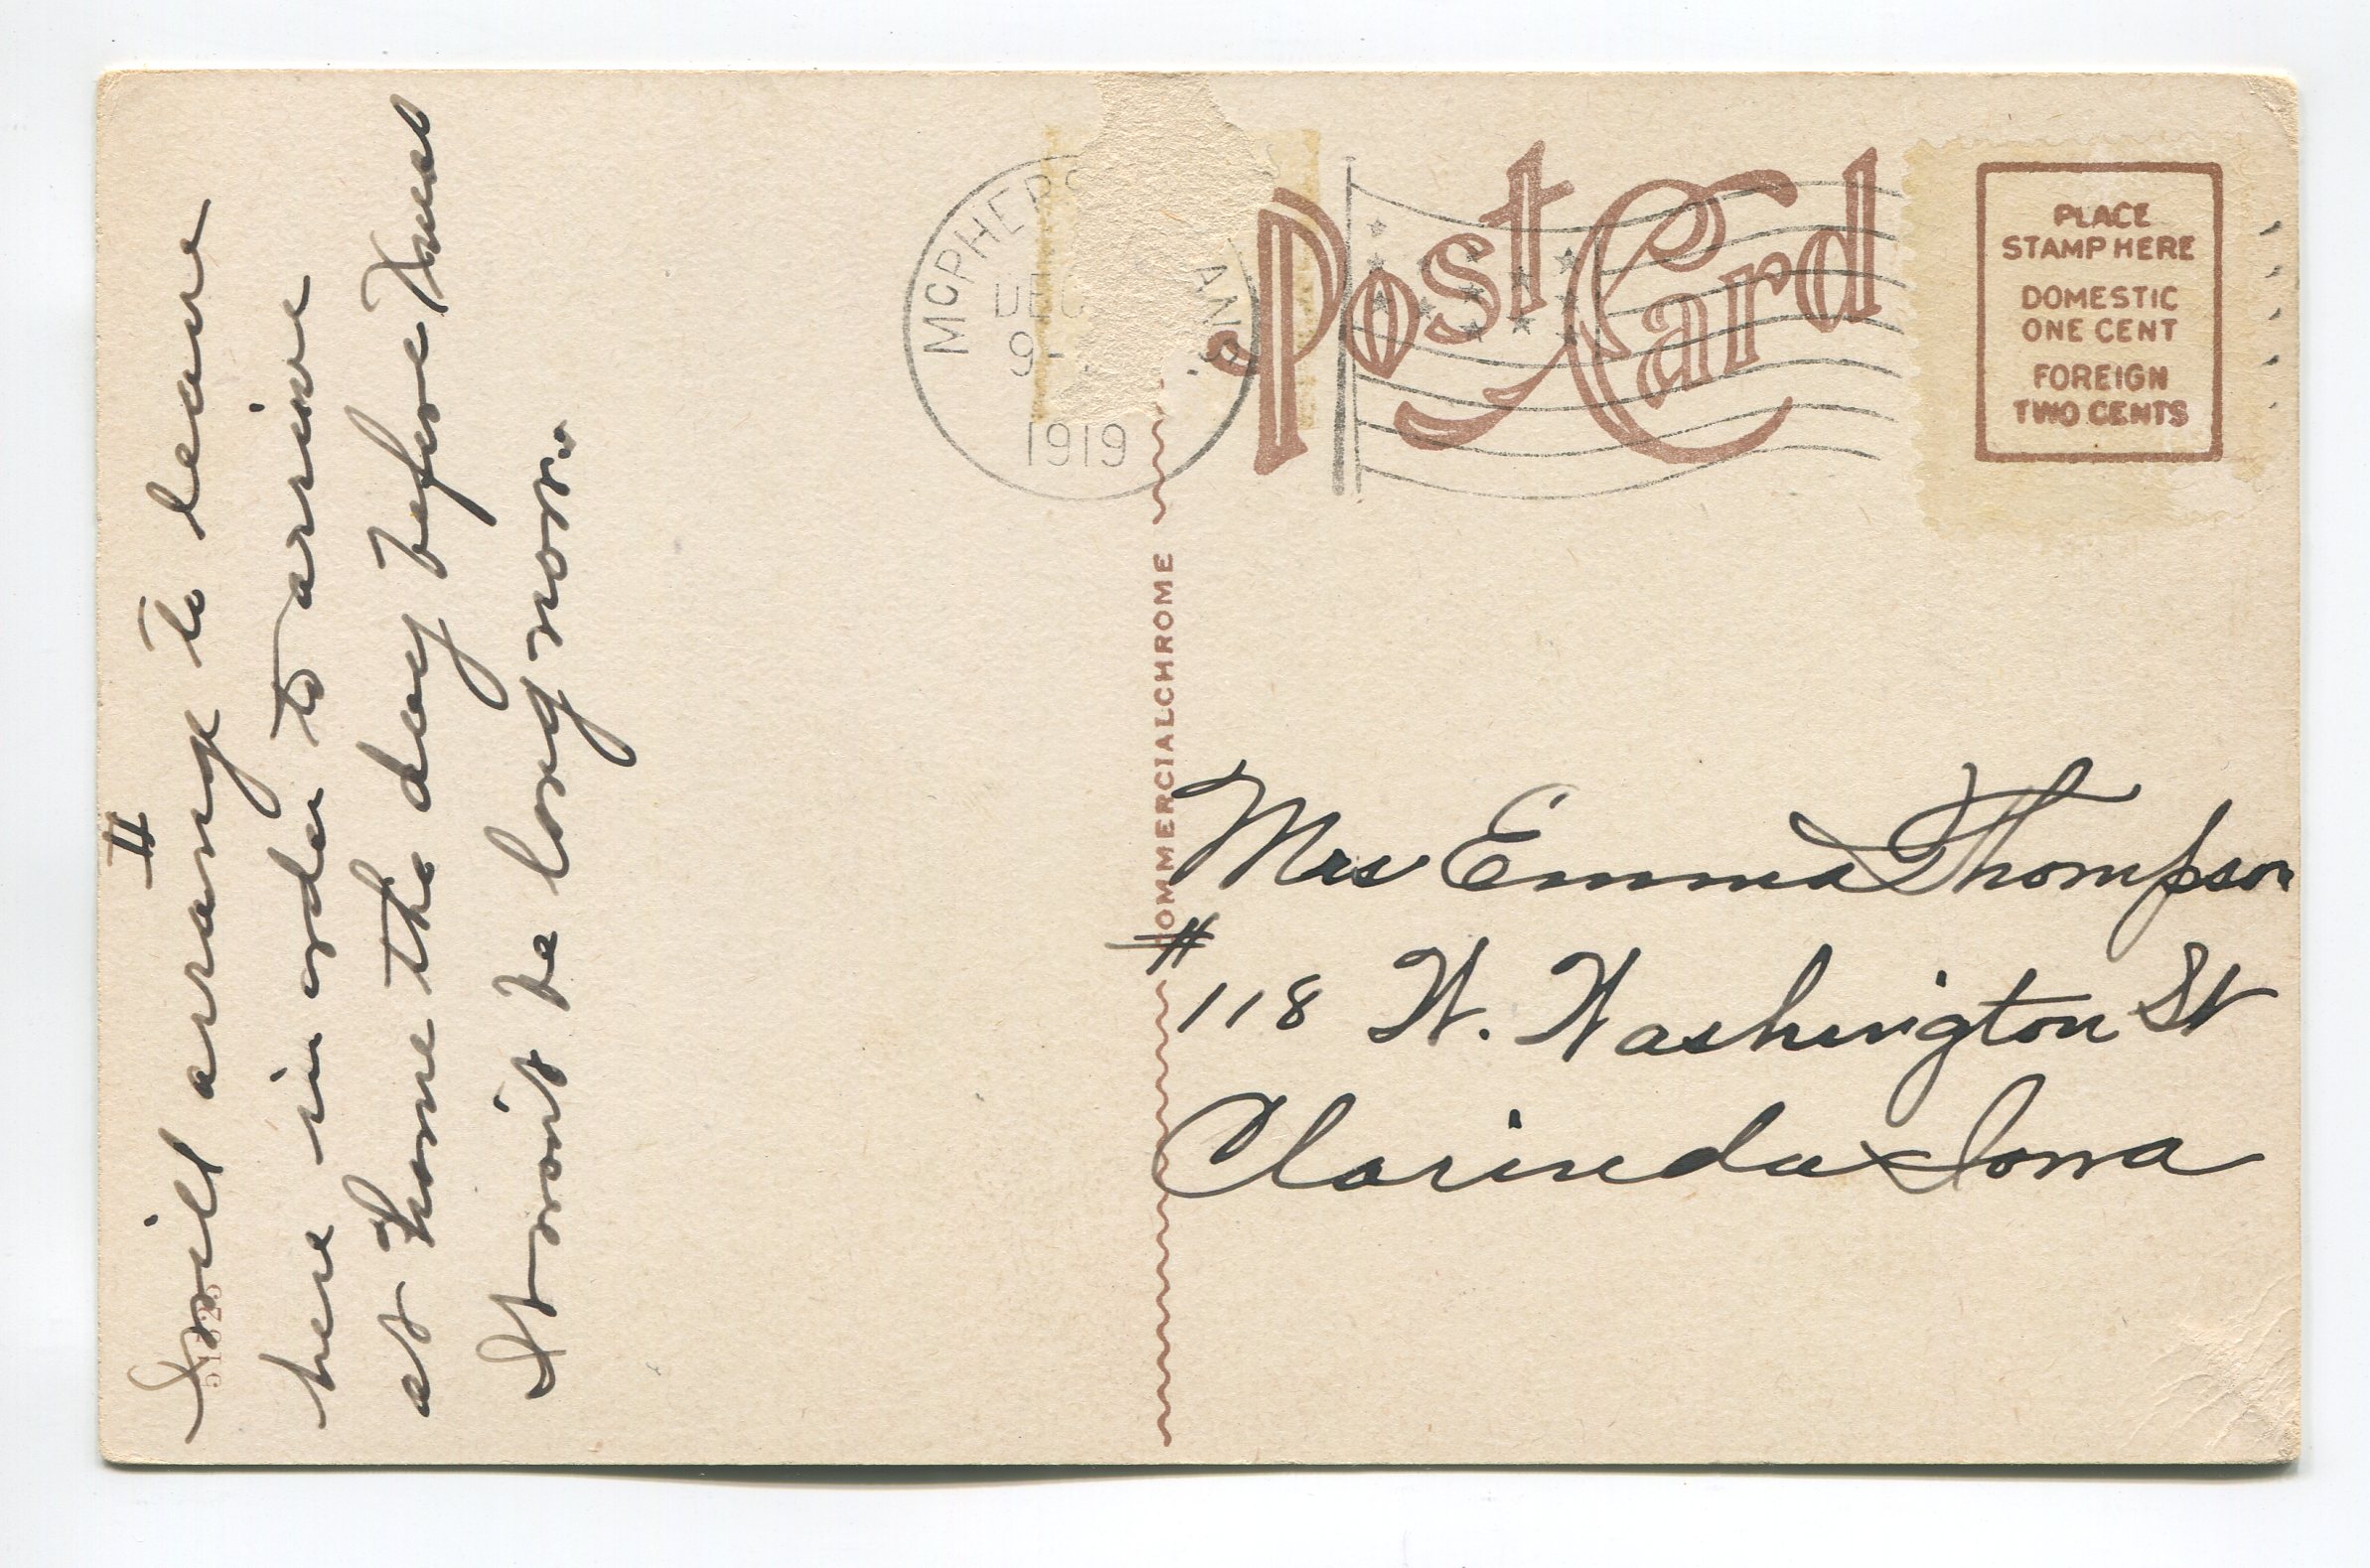 II
I will arrange to leave
here in order to arrive
at home the day before Xmas
It wont be long now.
MCPHERS AN
DEC
9
1919
Post Card
PLACE
STAMP HERE
DOMESTIC
ONE CENT
FOREIGN
TWO CENTS
COMMERCIALCHROME
Mrs Emma Thompson
#
118 W. Washington St
Clarinda Iowa